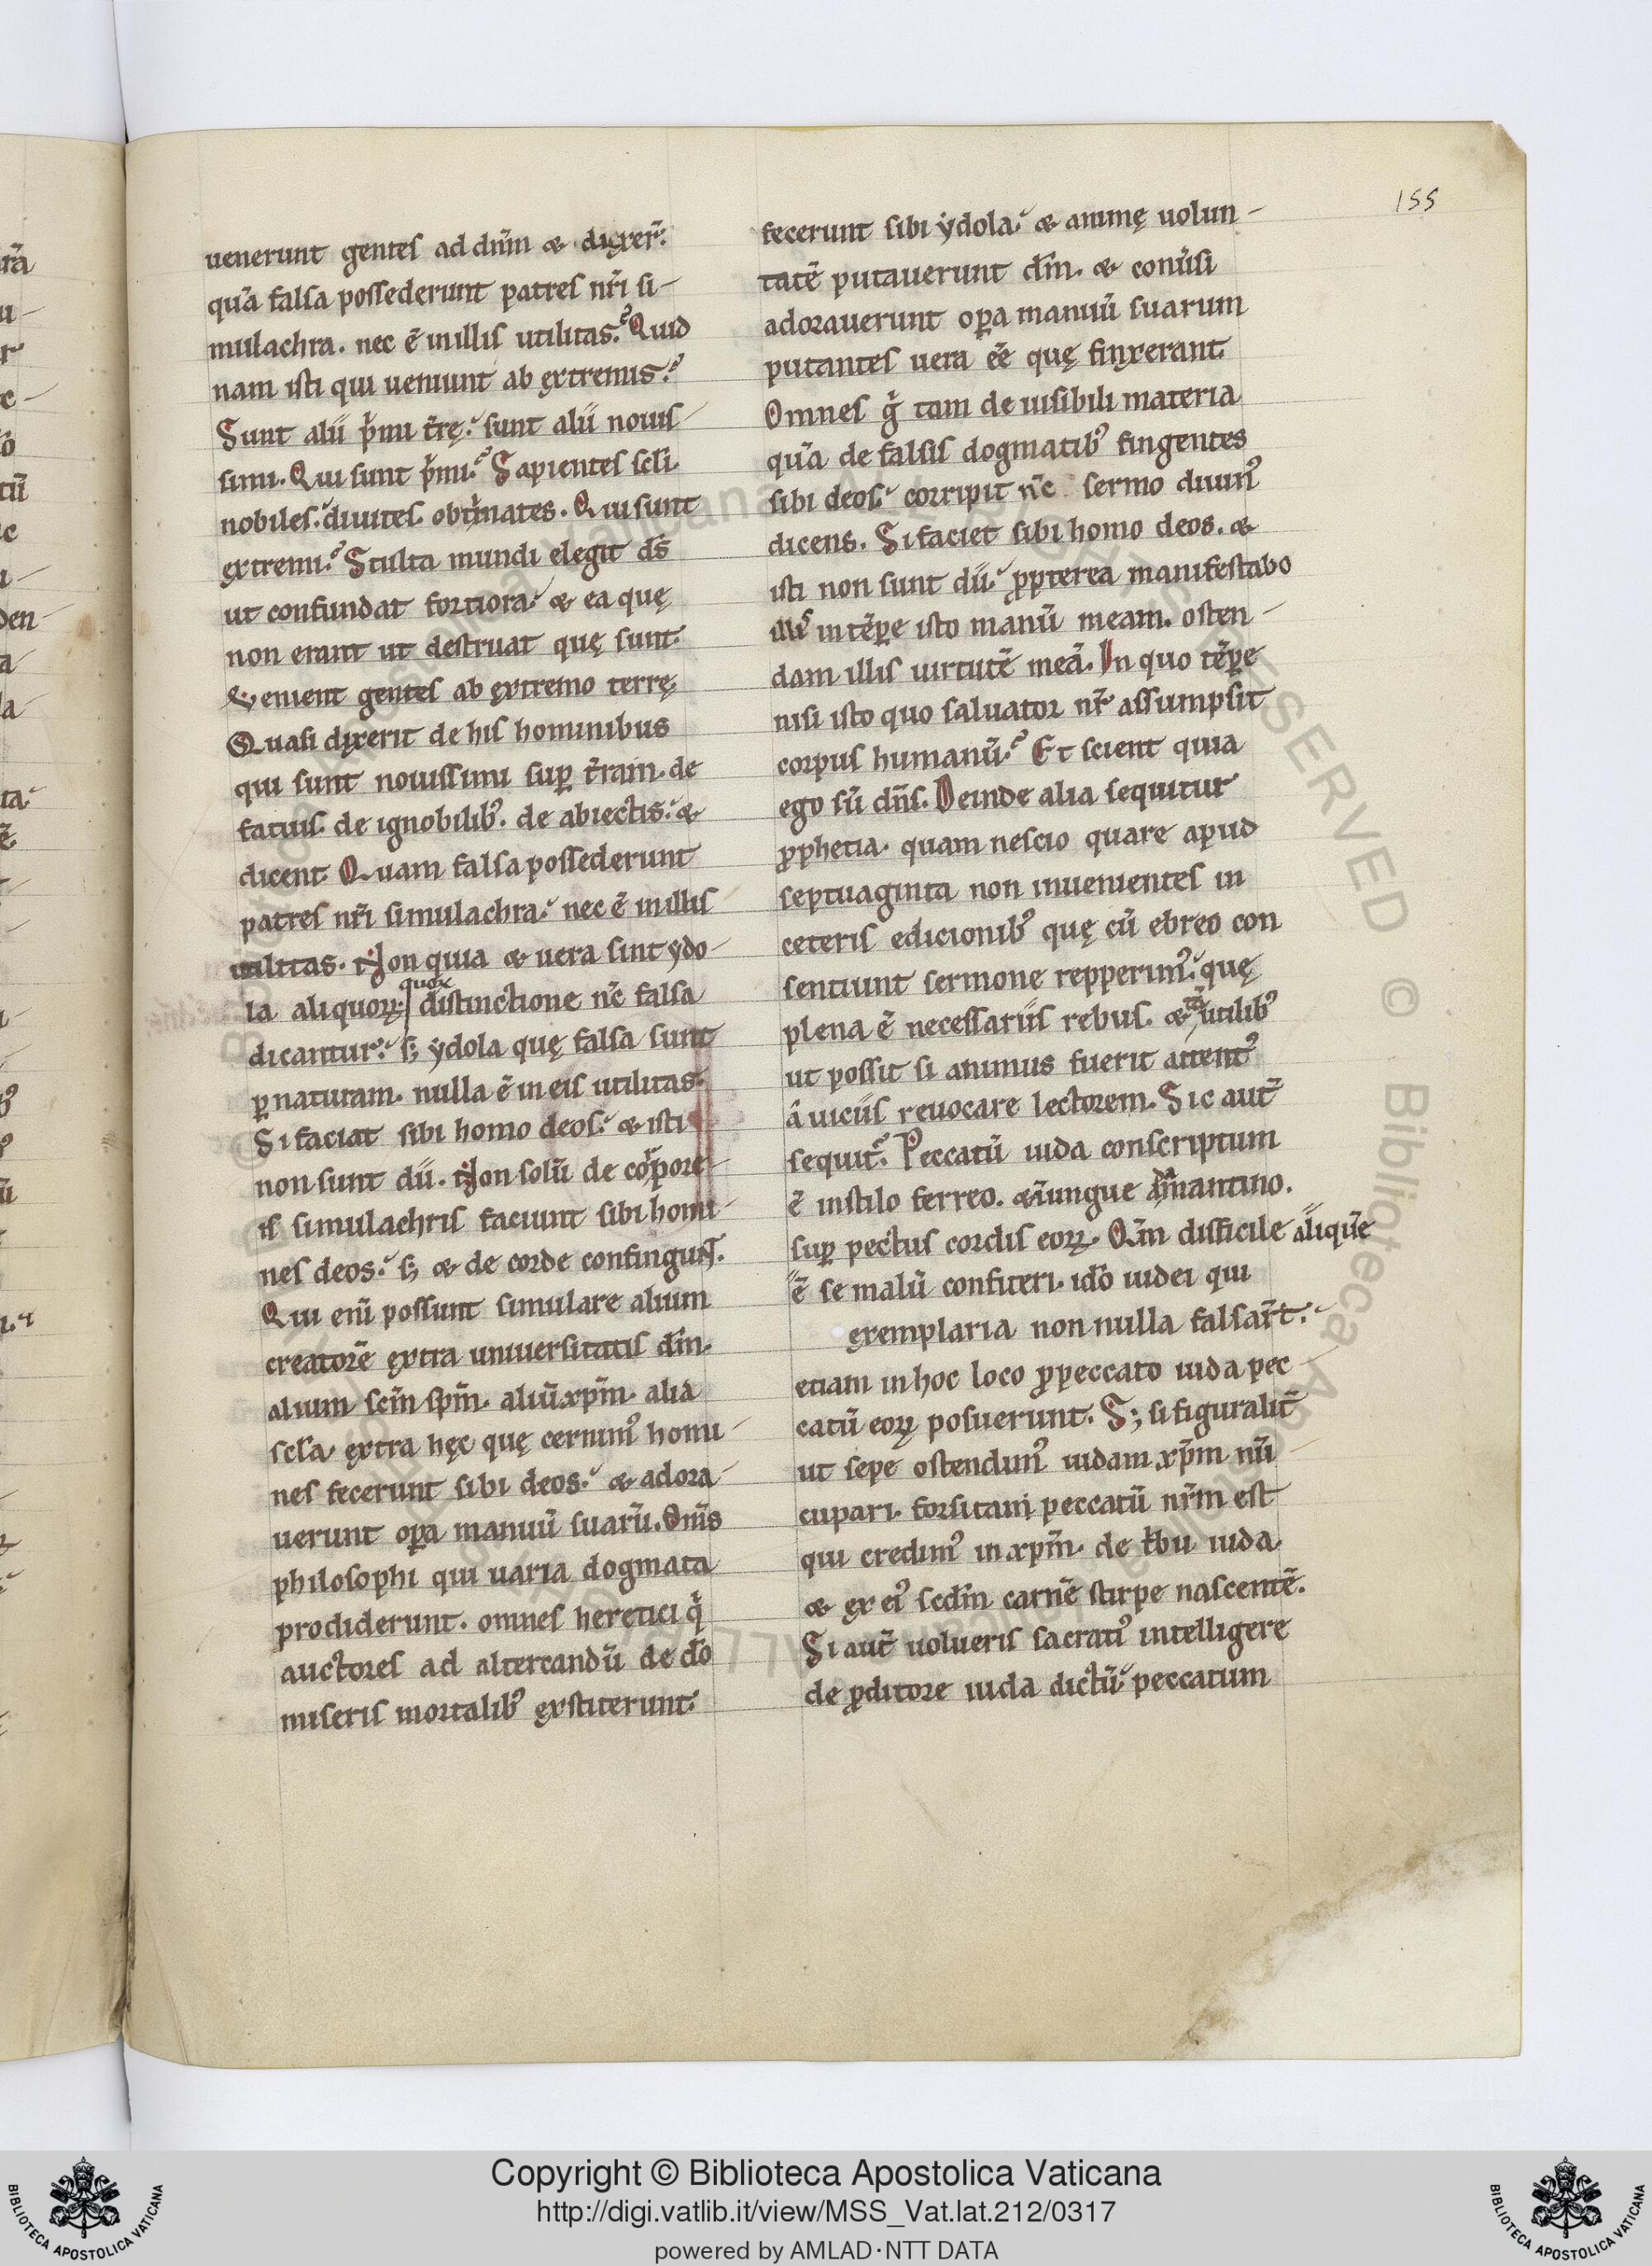 155
uenerunt gentes ad dn̄m & dixer̄.
quā falsa possederunt patres nr̄i si-
mulachra. nec ē in illis utilitas. Quid
nam isti qui ueniunt ab extremis?
Sunt alii p̄mi t̄rę. sunt alii nouis-
simi. Qui sunt p̄mi? Sapientes scl̄i
nobiles. diuites. obtimates. Qui sunt
extremi? Stulta mundi elegit ds̄
ut confundat fortiora. & ea quę
non erant ut destruat quę sunt.
Venient gentes ab extremo terrę
Quasi dixerit de his hominibus
qui sunt nouissimi suꝑ t̄ram. de
fatuis. de ignobilibꝰ. de abiectis. &
dicent Quam falsa possederunt
patres nr̄i simulachra. nec ē in illis
utilitas. Non quia & uera sint ydo-
la aliquoꝝ. quoꝝ distinctione nc̄ falsa
dicantur. s; ydola quę falsa sunt
ꝑ naturam. nulla ē in eis utilitas.
Si faciat sibi homo deos. & isti
non sunt dii. Non solū de corpore-
is simulachris faciunt sibi homi-
nes deos. s; & de corde confingunt.
Qui eni᷎ possunt simulare alium
creatorē extra uniuersitatis dm̄.
alium scm̄ spm̄. aliū xpm̄. alia
scl̄a. extra hęc quę cernimꝰ homi-
nes fecerunt sibi deos. & adora-
uerunt oꝑa manuū suarū. Om̄s
philosophi qui uaria dogmata
prodiderunt. omnes heretici q̄
auctores ad altercandū de do̅
miseris mortalibꝰ extiterunt.
fecerunt sibi ydola. & animę uolun-
tatē putauerunt dm̄. & conūsi
adorauerunt oꝑa manuū suarum
putantes uera eē quę finxerant.
Omnes g̊ tam de uisibili materia
quā de falsis dogmatibꝰ fingentes
sibi deos. corripit nc̄ sermo diuinꝰ
dicens. Si faciet sibi homo deos. &
isti non sunt dii. ꝓpterea manifestabo
illis in tēꝑe isto manū meam. osten-
dam illis uirtutē meā. In quo tēꝑe
nisi isto quo saluator nr̄ assumpsit
corpus humanū? Et scient quia
ego sū dn̄s. Deinde alia sequitur
ꝓphetia. quam nescio quare apud
septuaginta non inuenientes in
ceteris edicionibꝰ quę cū ebreo con
sentiunt sermone repperimꝰ. quę
plena ē necessariis rebus. & tā utilibꝰ
ut possit si animus fuerit attentꝰ
á uiciis reuocare lectorem. Sic aut̄
sequit᷑. Peccatū iuda conscriptum
ē in stilo ferreo. & in ungue adamantino.
suꝑ pectus cordis eoꝝ. Qm̄ difficile aliquē
ē se malū confiteri. ido̅ iudei qui
exemplaria non nulla falsar̄t.
etiam in hoc loco ꝓ peccato iuda pec
catū eoꝝ posuerunt. S; si figuralit̄
ut sepe ostendimꝰ iudam xp̄m nū-
cupari. forsitam peccatū nr̄m est
qui credimꝰ in xpm̄. de tbu iuda.
& ex eiꝰ scdm̄ carnē stirpe nascentē.
Si aut̄ uolueris sacratiꝰ intelligere
de ꝓditore iuda dictū. peccatum
Copyright © Biblioteca Apostolica Vaticana
http://digi.vatlib.it/view/MSS_Vat.lat.212/0317
powered by AMLAD·NTT DATA
BIBLIOTECA APOSTOLICA VATICANA
BIBLIOTECA APOSTOLICA VATICANA